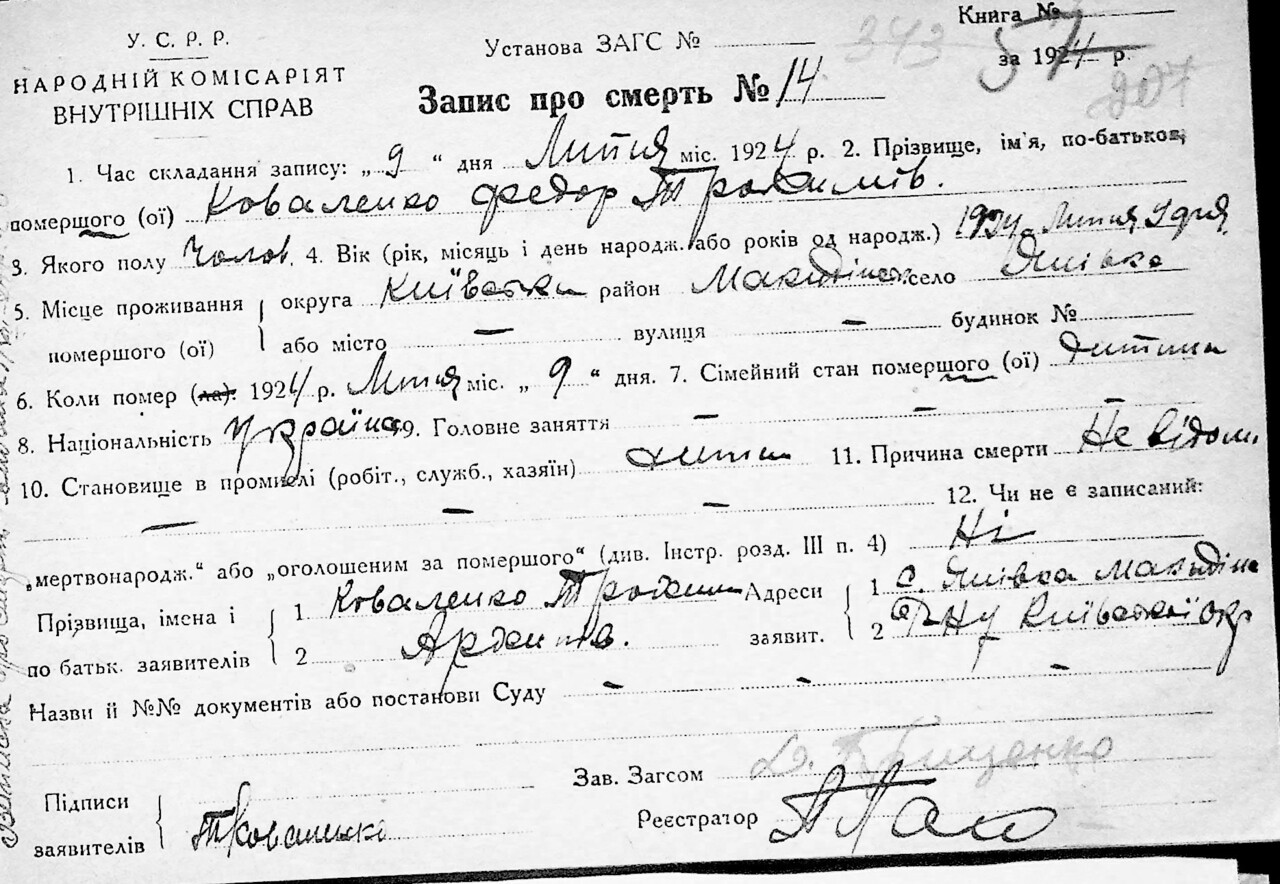 У. С. Р. Р.
НАРОДНІЙ КОМІСАРІЯТ
ВНУТРІШНІХ СПРАВ
Установа ЗАГС №
343
Книга №
57
за 1924 р.
207
Запис про смерть № 14
1. Час складання запису: „ 9 “ дня Липня міс. 1924 р. 2. Прізвище, ім'я, по-батькові,
помершого (ої) Коваленко Федор Трохимів.
3. Якого полу Чолов. 4. Вік (рік, місяць і день народж. або років од народж.) 1924 Липня 9 дня
5. Місце проживання помершого (ої) округа Київська район село Янівка
або місто — вулиця — будинок №
6. Коли помер (ла). 1924 р. Липня міс. „ 9 “ дня. 7. Сімейний стан помершого (ої) дитина
8. Національність Україна 9. Головне заняття — — —
10. Становище в промислі (робіт., служб., хазяїн) дитин 11. Причина смерти Не відом.
— — — 12. Чи не є записаний:
„мертвонародж.“ або „оголошеним за помершого“ (див. Інстр. розд. III п. 4) Ні
Прізвища, імена і по батьк. заявителів 1 Коваленко Трохим
2
Адреси заявит. 1 с. Янівка
2 Р-ну Київської окр
Назви й №№ документів або постанови Суду — — —
Зав. Загсом
Підписи заявителів Т Коваленко
Реєстратор